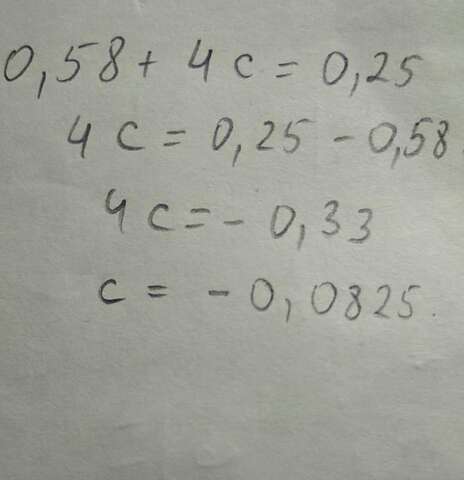 0,58 + 4c = 0,25
4c = 0,25 - 0,58.
4c = - 0,33
c = - 0,0825.